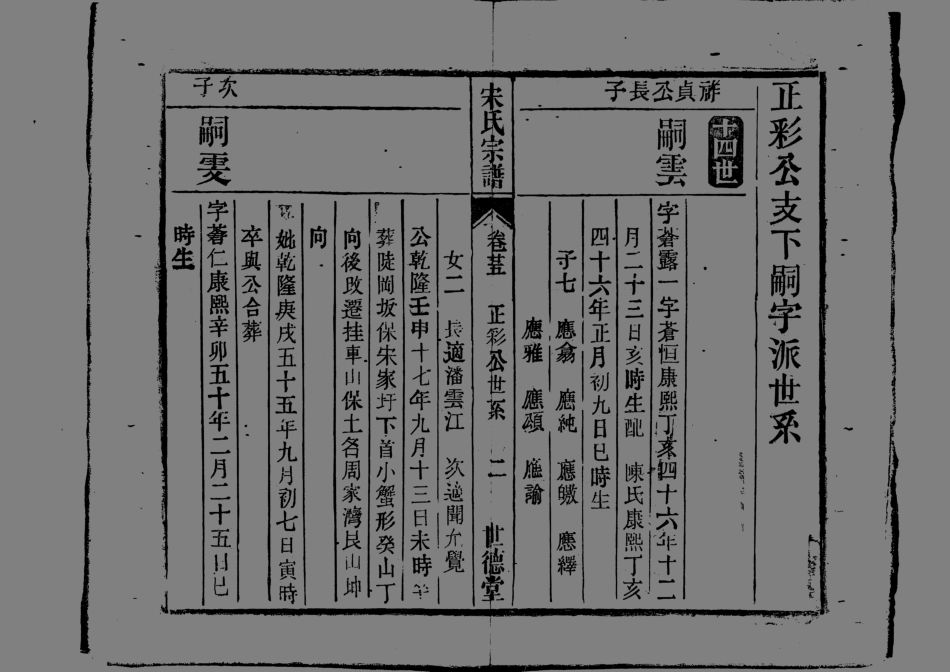 正彩公支下嗣字派世系
十四世
祥貞公長子
嗣雲
字蒼露一字蒼恒康熙丁亥四十六年十二
月二十三日亥時生配 陳氏康熙丁亥
四十六年正月初九日巳時生
子七 應翕 應純 應皦 應繹
應雅 應頌 應諭
宋氏宗譜
卷 正彩公世系 二 世德堂
女二 長適潘雲江 次適聞允覺
公乾隆壬申十七年九月十三日未時卒
葬陡岡坂保宋家圩下首小蟹形癸山丁
向後改遷挂車山保土名周家灣艮山坤
向
妣乾隆庚戌五十五年九月初七日寅時
卒與公合葬
次子
嗣雯
字蒼仁康熙辛卯五十年二月二十五日巳
時生